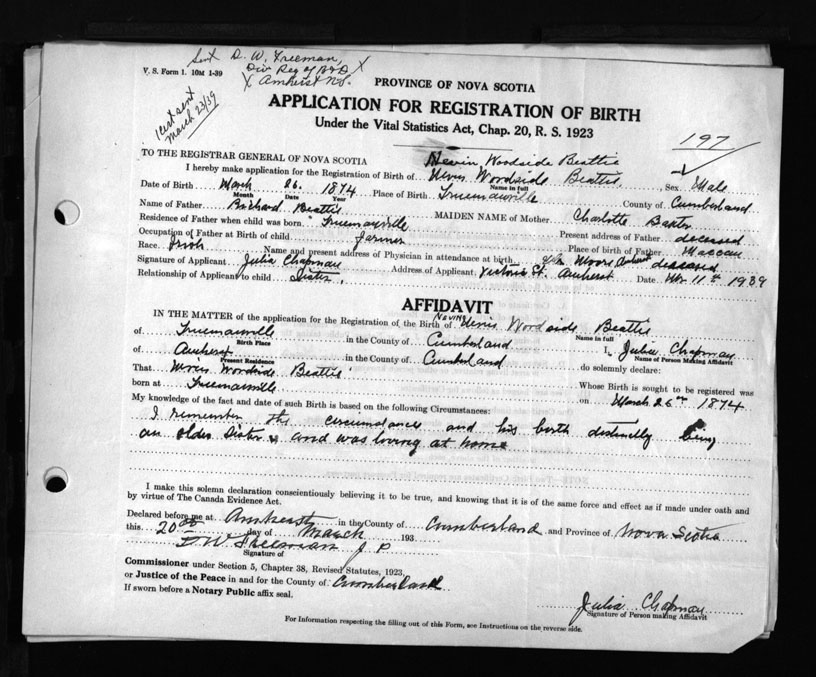 Sent D. W. Freeman,
V. S. Form 1. 10M 1-39
Div Reg of B & D X
X Amherst N.S.
Cert sent
March 23/39
PROVINCE OF NOVA SCOTIA
APPLICATION FOR REGISTRATION OF BIRTH
Under the Vital Statistics Act, Chap. 20, R. S. 1923
197
TO THE REGISTRAR GENERAL OF NOVA SCOTIA Woodside Beattie
I hereby make application for the Registration of Birth of Woodside Beattie, Name in full Sex Male
Date of Birth March 26. 1874 Place of Birth Truemanville County of Cumberland
Month Date Year
Name of Father Richard Beattie MAIDEN NAME of Mother Charlotte Baxter
Residence of Father when child was born Truemanville Present address of Father deceased
Occupation of Father at Birth of child farmer Place of birth of Father Maccan
Race Irish Name and present address of Physician in attendance at birth Dr Moore Amherst deceased
Signature of Applicant Julia Chapman Address of Applicant Victoria St. Amherst Date 11th 1939
Relationship of Applicant to child Sister.
AFFIDAVIT
IN THE MATTER of the application for the Registration of the Birth of Woodside Beattie
Name in full
of Truemanville in the County of Cumberland I, Julia Chapman
Birth Place Name of Person Making Affidavit
of Amherst in the County of Cumberland do solemnly declare:
Present Residence
That Woodside Beattie Whose Birth is sought to be registered was
born at Truemanville on March 26th 1874
My knowledge of the fact and date of such Birth is based on the following Circumstances:
I remember the circumstances and his birth distinctly being
an older sister and was living at home
I make this solemn declaration conscientiously believing it to be true, and knowing that it is of the same force and effect as if made under oath and
by virtue of The Canada Evidence Act.
Declared before me at Amherst in the County of Cumberland and Province of Nova Scotia
this 20th day of March 193
D. W. Freeman J P
Signature of
Commissioner under Section 5, Chapter 38, Revised Statutes, 1923,
or Justice of the Peace in and for the County of Cumberland
If sworn before a Notary Public affix seal.
Julia Chapman
Signature of Person making Affidavit
For Information respecting the filling out of this Form, see Instructions on the reverse side.